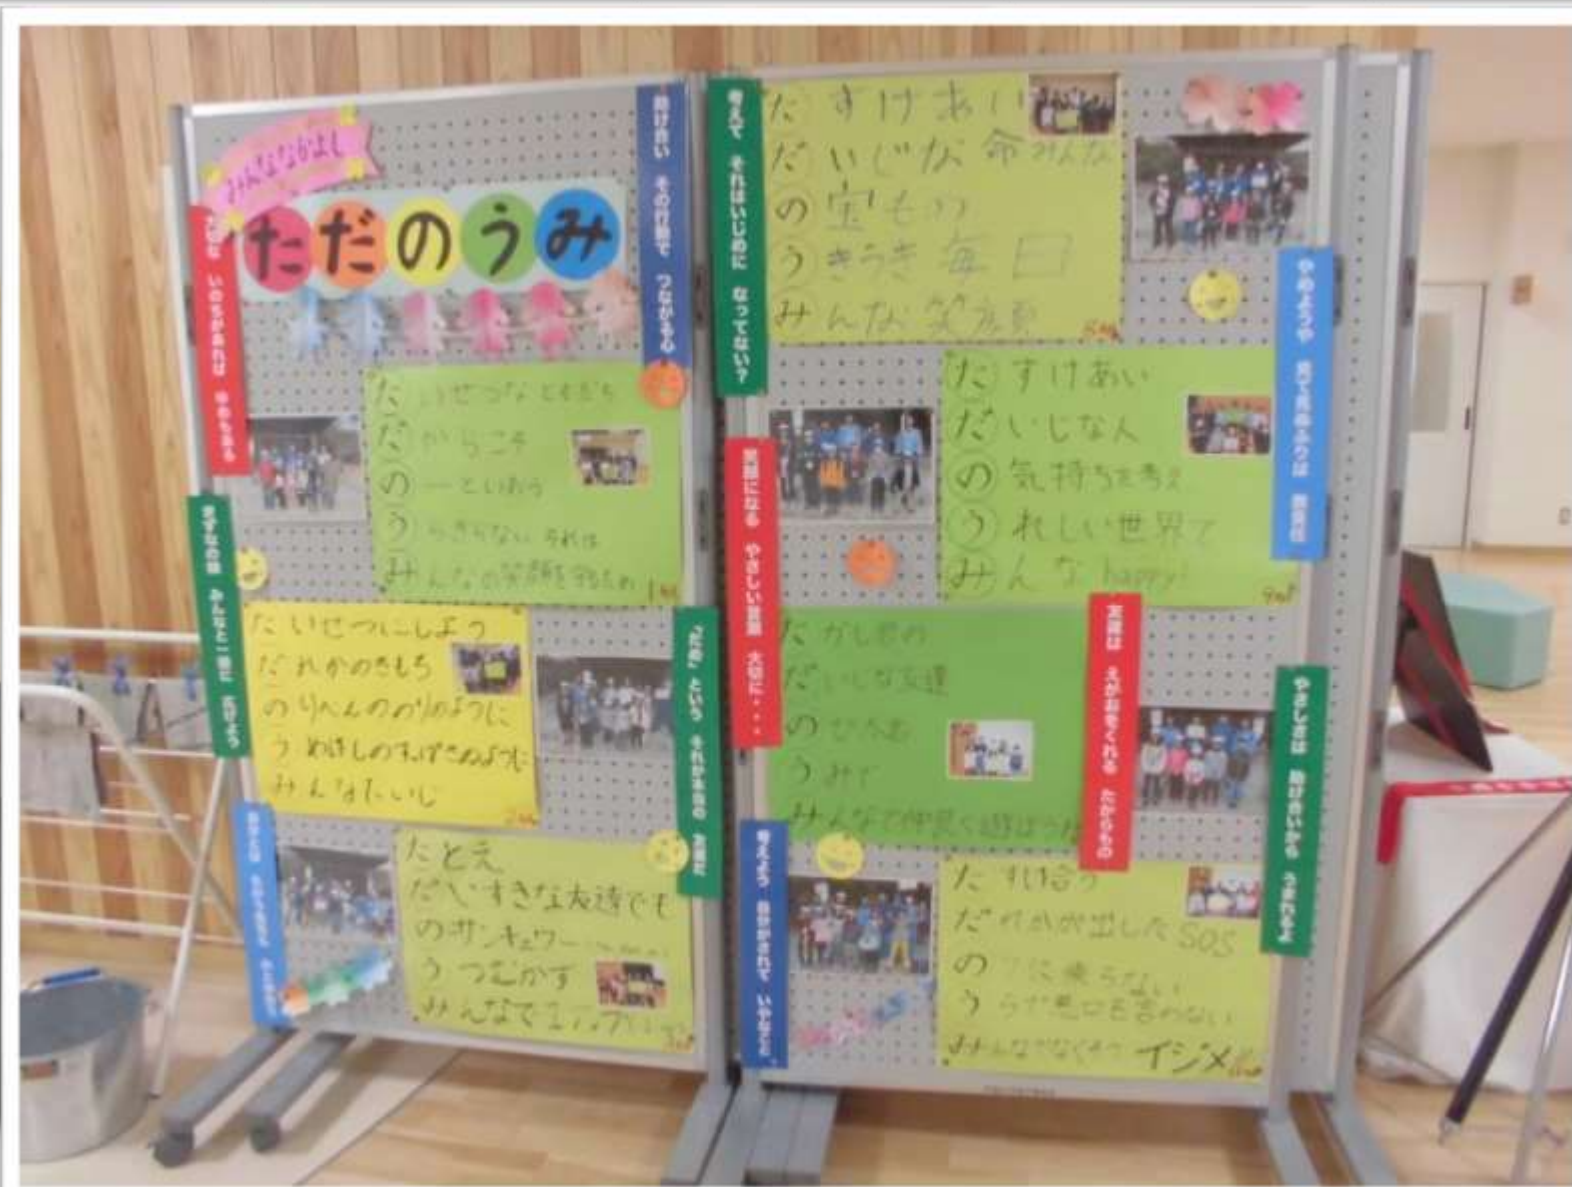 みんななかよし
ただのうみ
助け合い その行動で つながる心
いのちがあれば ゆめもある
たいせつなともだち
だからこそ
の
うらぎらない それは
みんなの笑顔を守るため
きずなの輪 みんなと一緒に 広げよう
たいせつにしよう
だれかのきもち
のりべんののりのように
うめぼしのすっぱさのように
みんなだいじ
「だめ」という それが本当の 友達だ
たとえ
だいすきな友達でも
のサンキュワー
うつむかず
みんなで
考えて それはいじめに なってない?
たすけあい
だいじな 命みんな
の宝もの
うきうき毎日
みんな笑顔
やめようや 見て見ぬふりは 無責任
たすけあい
だいじな人
の気持ちを考え
うれしい世界で
みんなhappy!
笑顔になる やさしい言葉 大切に・・・
だいじな友達
の
うみで
みんなで仲良く遊ぼうよ
笑顔は えがおをくれる たからもの
やさしさは 助け合いから うまれるよ
考えよう 自分がされて いやなこと
たすけ合う
だれかが出したSOS
の
う
みんなでなくそう イジメ